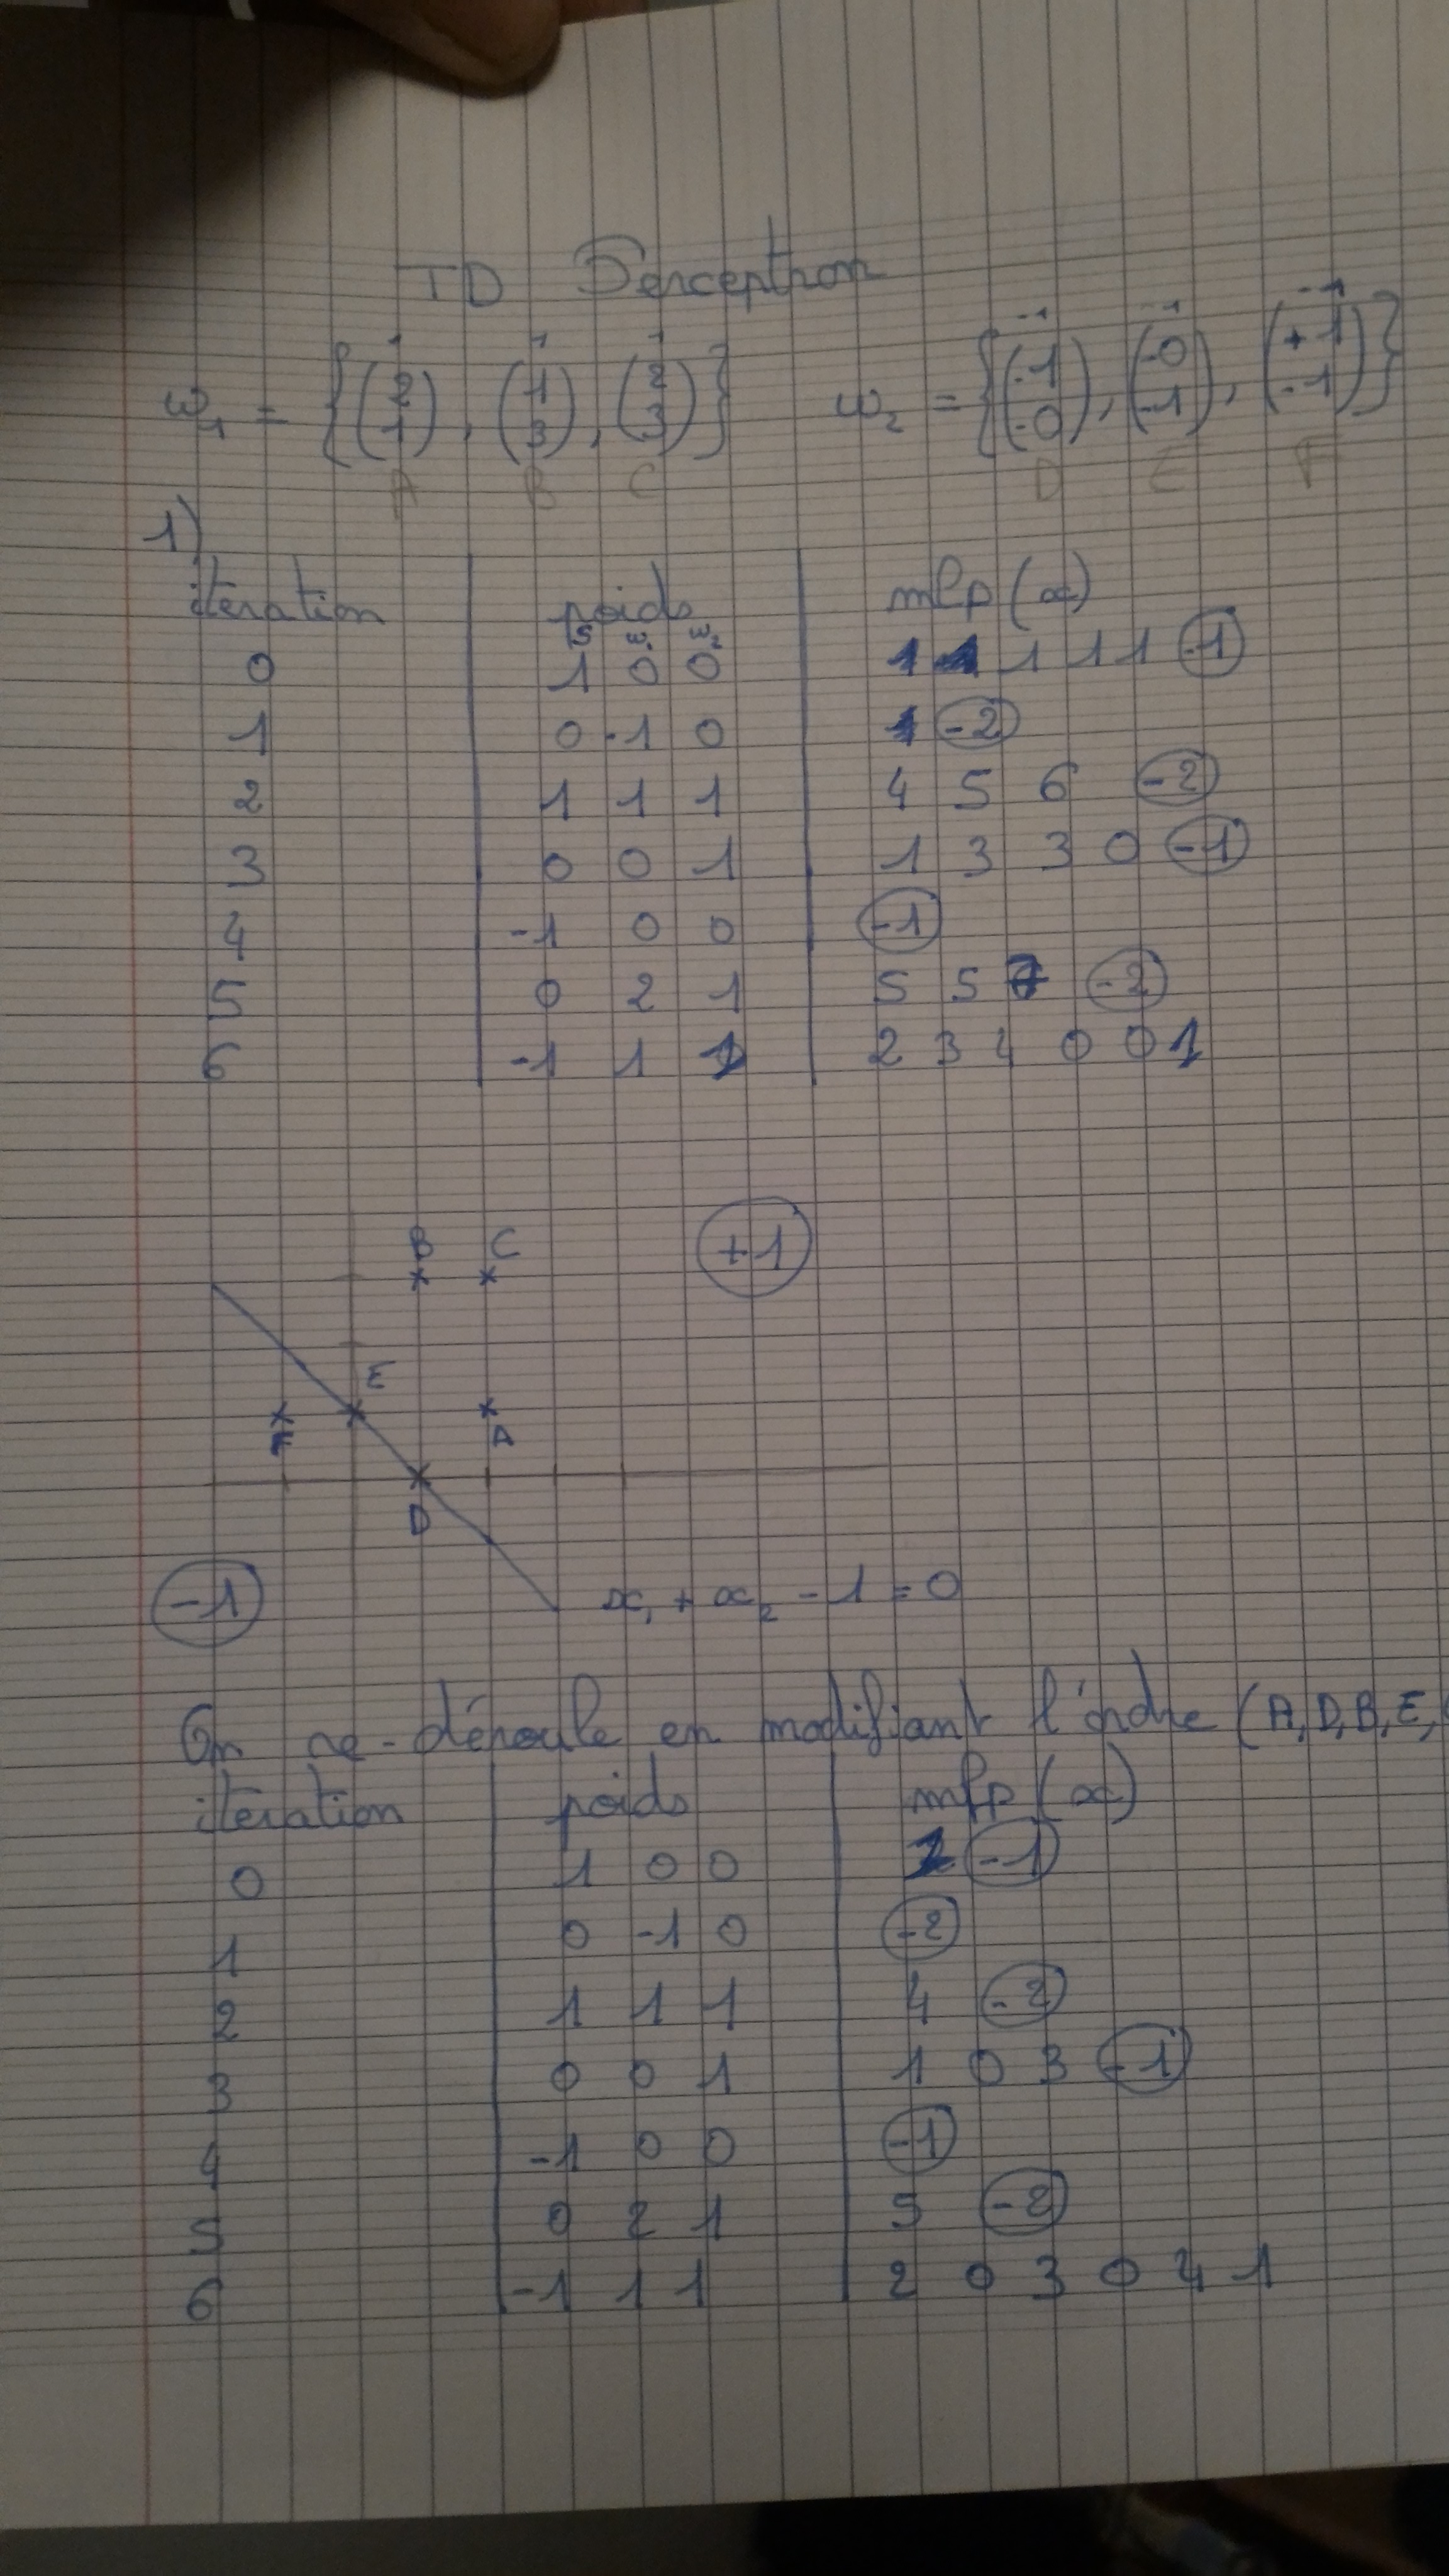 TD Perceptron
1 1 1 -1 -1 -1
ω₁ = {(2 1), (1 3), (2 3)} ω₂ = {(-1 -0), (-0 -1), (+1 -1)}
A B C D E F
1)
itération poids mlp(x)
S ω₁ ω₂
0 1 0 0 1 1 1 1 1 -1
1 0 -1 0 1 -2
2 1 1 1 4 5 6 -2
3 0 0 1 1 3 3 0 -1
4 -1 0 0 -1
5 0 2 1 5 5 7 -2
6 -1 1 1 2 3 4 0 0 1
B C +1
E
F A
D
-1 x₁ + x₂ - 1 = 0
On re-déroule en modifiant l'ordre (A, D, B, E,
itération poids mlp(x)
0 1 0 0 1 -1
1 0 -1 0 -2
2 1 1 1 4 -2
3 0 0 1 1 0 3 -1
4 -1 0 0 -1
5 0 2 1 5 -2
6 -1 1 1 2 0 3 0 4 1